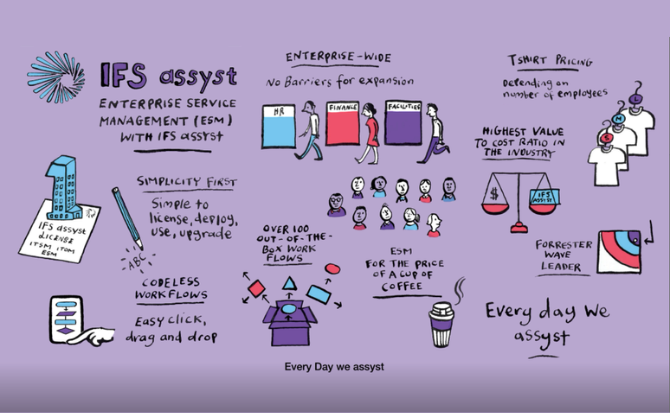 IFS assyst
ENTERPRISE SERVICE
MANAGEMENT (ESM)
WITH IFS assyst
ENTERPRISE-WIDE
No Barriers for expansion
HR
FINANCE
FACILITIES
TSHIRT PRICING
Depending on
number of employees
S
M
L
HIGHEST VALUE
TO COST RATIO IN
THE INDUSTRY
$
IFS
assyst
1
IFS assyst
LICENSE
ITSM ITOM
ESM
SIMPLICITY FIRST
Simple to
license, deploy,
use, upgrade
ABC
OVER 100
OUT-OF-THE-
BOX WORK
FLOWS
ESM
FOR THE PRICE
OF A CUP OF
COFFEE
FORRESTER
WAVE
LEADER
CODELESS
WORKFLOWS
Easy click,
drag and drop
Every day we
assyst
Every Day we assyst